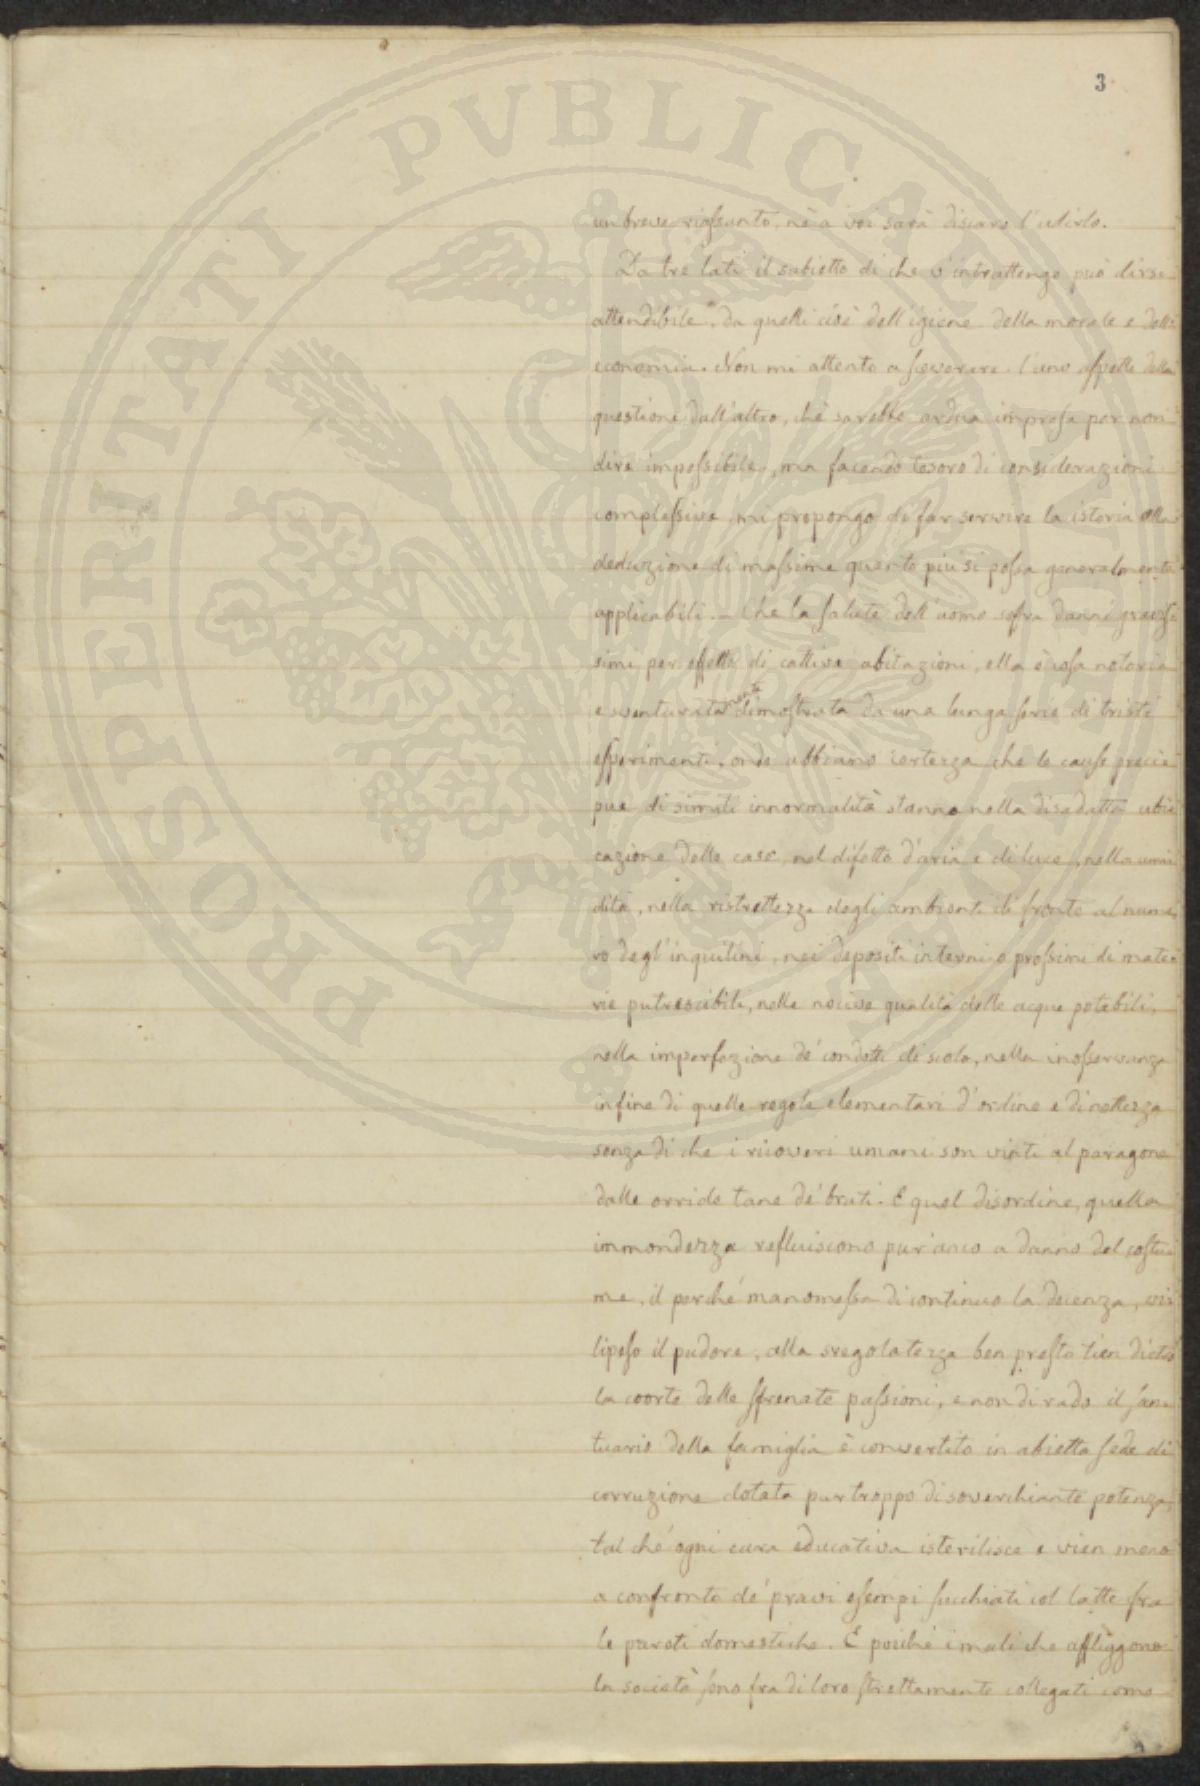 3
PROSPERITATI PVBLICAE AVGENDAE
un breve riassunto, nè a voi sarà discaro l'udirlo.
Da tre lati il subietto di che v'intrattengo può dirsi
attendibile, da quelli cioè dell'igiene della morale e dell'
economia. Non mi attento a scevrare l'uno aspetto della
questione dall'altro, chè sarebbe ardua impresa per non
dire impossibile, ma facendo tesoro di considerazioni
complessive, mi propongo di far servire la istoria alla
deduzione di massime quanto più si possa generalmente
applicabili. – Che la salute dell'uomo sofra danni gravis=
simi per effetto di cattive abitazioni, ella è cosa notoria
e sventuratamente dimostrata da una lunga serie di tristi
esperimenti, onde abbiamo certezza che le cause preci=
pue di simili innormalità stanno nella disadatta ubi=
cazione delle case, nel difetto d'aria e di luce, nella umi=
dità, nella ristrettezza degli ambienti di fronte al nume=
ro degl'inquilini, nei depositi interni o prossimi di mate=
rie putrescibili, nelle nocive qualità delle acque potabili,
nella imperfezione de' condotti di scolo, nella inosservanza
infine di quelle regole elementari d'ordine e di nettezza
senza di che i ricoveri umani son vinti al paragone
dalle orride tane de' bruti. E quel disordine, quella
immondezza refluiscono pur anco a danno del costu=
me, il perché manomessa di continuo la decenza, vi=
lipeso il pudore, alla sregolatezza ben presto tien dietro
la coorte delle sfrenate passioni, e non di rado il san=
tuario della famiglia è convertito in abietta sede di
corruzione dotata pur troppo di soverchiante potenza,
tal ché ogni cura educativa isterilisce e vien meno
a confronto de' pravi esempi succhiati col latte fra
le pareti domestiche. E poiché i mali che affliggono
la società sono fra di loro strettamente collegati come